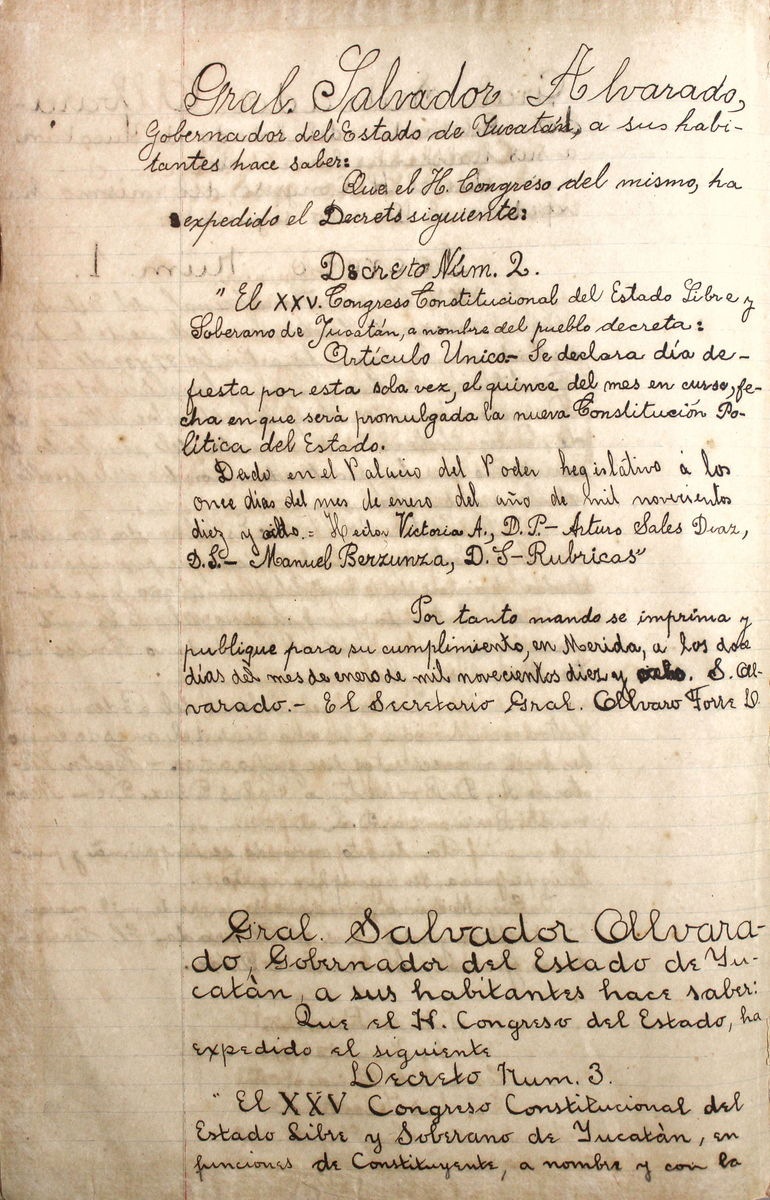 Gral. Salvador Alvarado,
Gobernador del Estado de Yucatán, a sus habi-
tantes hace saber:
Que el H. Congreso del mismo, ha
expedido el Decreto siguiente:
Decreto Núm. 2.
"El XXV. Congreso Constitucional del Estado Libre y
Soberano de Yucatán, a nombre del pueblo decreta:
Artículo Unico.- Se declara día de-
fiesta por esta sola vez, el quince del mes en curso, fe-
cha en que será promulgada la nueva Constitución Po-
lítica del Estado.
Dado en el Palacio del Poder Legislativo á los
once dias del mes de enero del año de mil novecientos
diez y ocho.= Hector Victoria A., D. P.- Arturo Sales Diaz,
D.S.- Manuel Berzunza, D. S-Rubricas"
Por tanto mando se imprima y
publique para su cumplimiento, en Merida, a los doce
días del mes de enero de mil novecientos diez y ocho. S. Al-
varado.- El Secretario Gral. Alvaro Torre D.
Gral. Salvador Alvara-
do, Gobernador del Estado de Yu-
catán, a sus habitantes hace saber:
Que el H. Congreso del Estado, ha
expedido el siguiente
Decreto Num. 3.
"El XXV Congreso Constitucional del
Estado Libre y Soberano de Yucatán, en
funciones de Constituyente, a nombre y con la